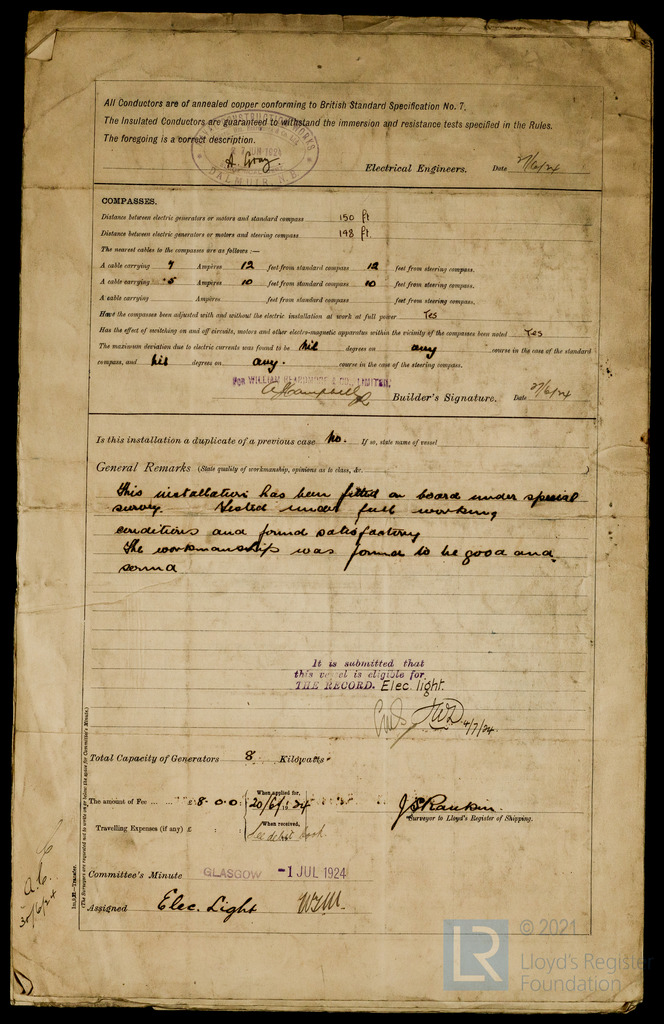 All Conductors are of annealed copper conforming to British Standard Specification No. 7.
The Insulated Conductors are guaranteed to withstand the immersion and resistance tests specified in the Rules.
The foregoing is a correct description.
DALMUIR
A. Gray. Electrical Engineers. Date 27/6/24
COMPASSES.
Distance between electric generators or motors and standard compass 150 ft
Distance between electric generators or motors and steering compass 148 ft.
The nearest cables to the compasses are as follows:—
A cable carrying 7 Ampères 12 feet from standard compass 12 feet from steering compass.
A cable carrying .5 Ampères 10 feet from standard compass 10 feet from steering compass.
A cable carrying Ampères feet from standard compass feet from steering compass.
Have the compasses been adjusted with and without the electric installation at work at full power Yes
Has the effect of switching on and off circuits, motors and other electro-magnetic apparatus within the vicinity of the compasses been noted Yes
The maximum deviation due to electric currents was found to be Nil degrees on any course in the case of the standard
compass, and Nil degrees on any. course in the case of the steering compass.
FOR WILLIAM BEARDMORE & CO., LIMITED.
Campbell Builder's Signature. Date 27/6/24
Is this installation a duplicate of a previous case No. If so, state name of vessel
General Remarks (State quality of workmanship, opinions as to class, &c.
This installation has been fitted on board under special
survey. Tested under full working
conditions and found satisfactory
The workmanship was found to be good and
sound
It is submitted that
this vessel is eligible for
THE RECORD. Elec. light.
4/7/24
Total Capacity of Generators 8 Kilowatts
The amount of Fee ... £ 8.0.0 When applied for, 20/6/1924
Travelling Expenses (if any) £ When received,
J S Rankin.
Surveyor to Lloyd's Register of Shipping.
Committee's Minute GLASGOW -1 JUL 1924
Assigned Elec. Light
(The Surveyors are requested not to write on or below the space for Committee's Minute.)
30/6/24
LR
© 2021
Lloyd's Register
Foundation